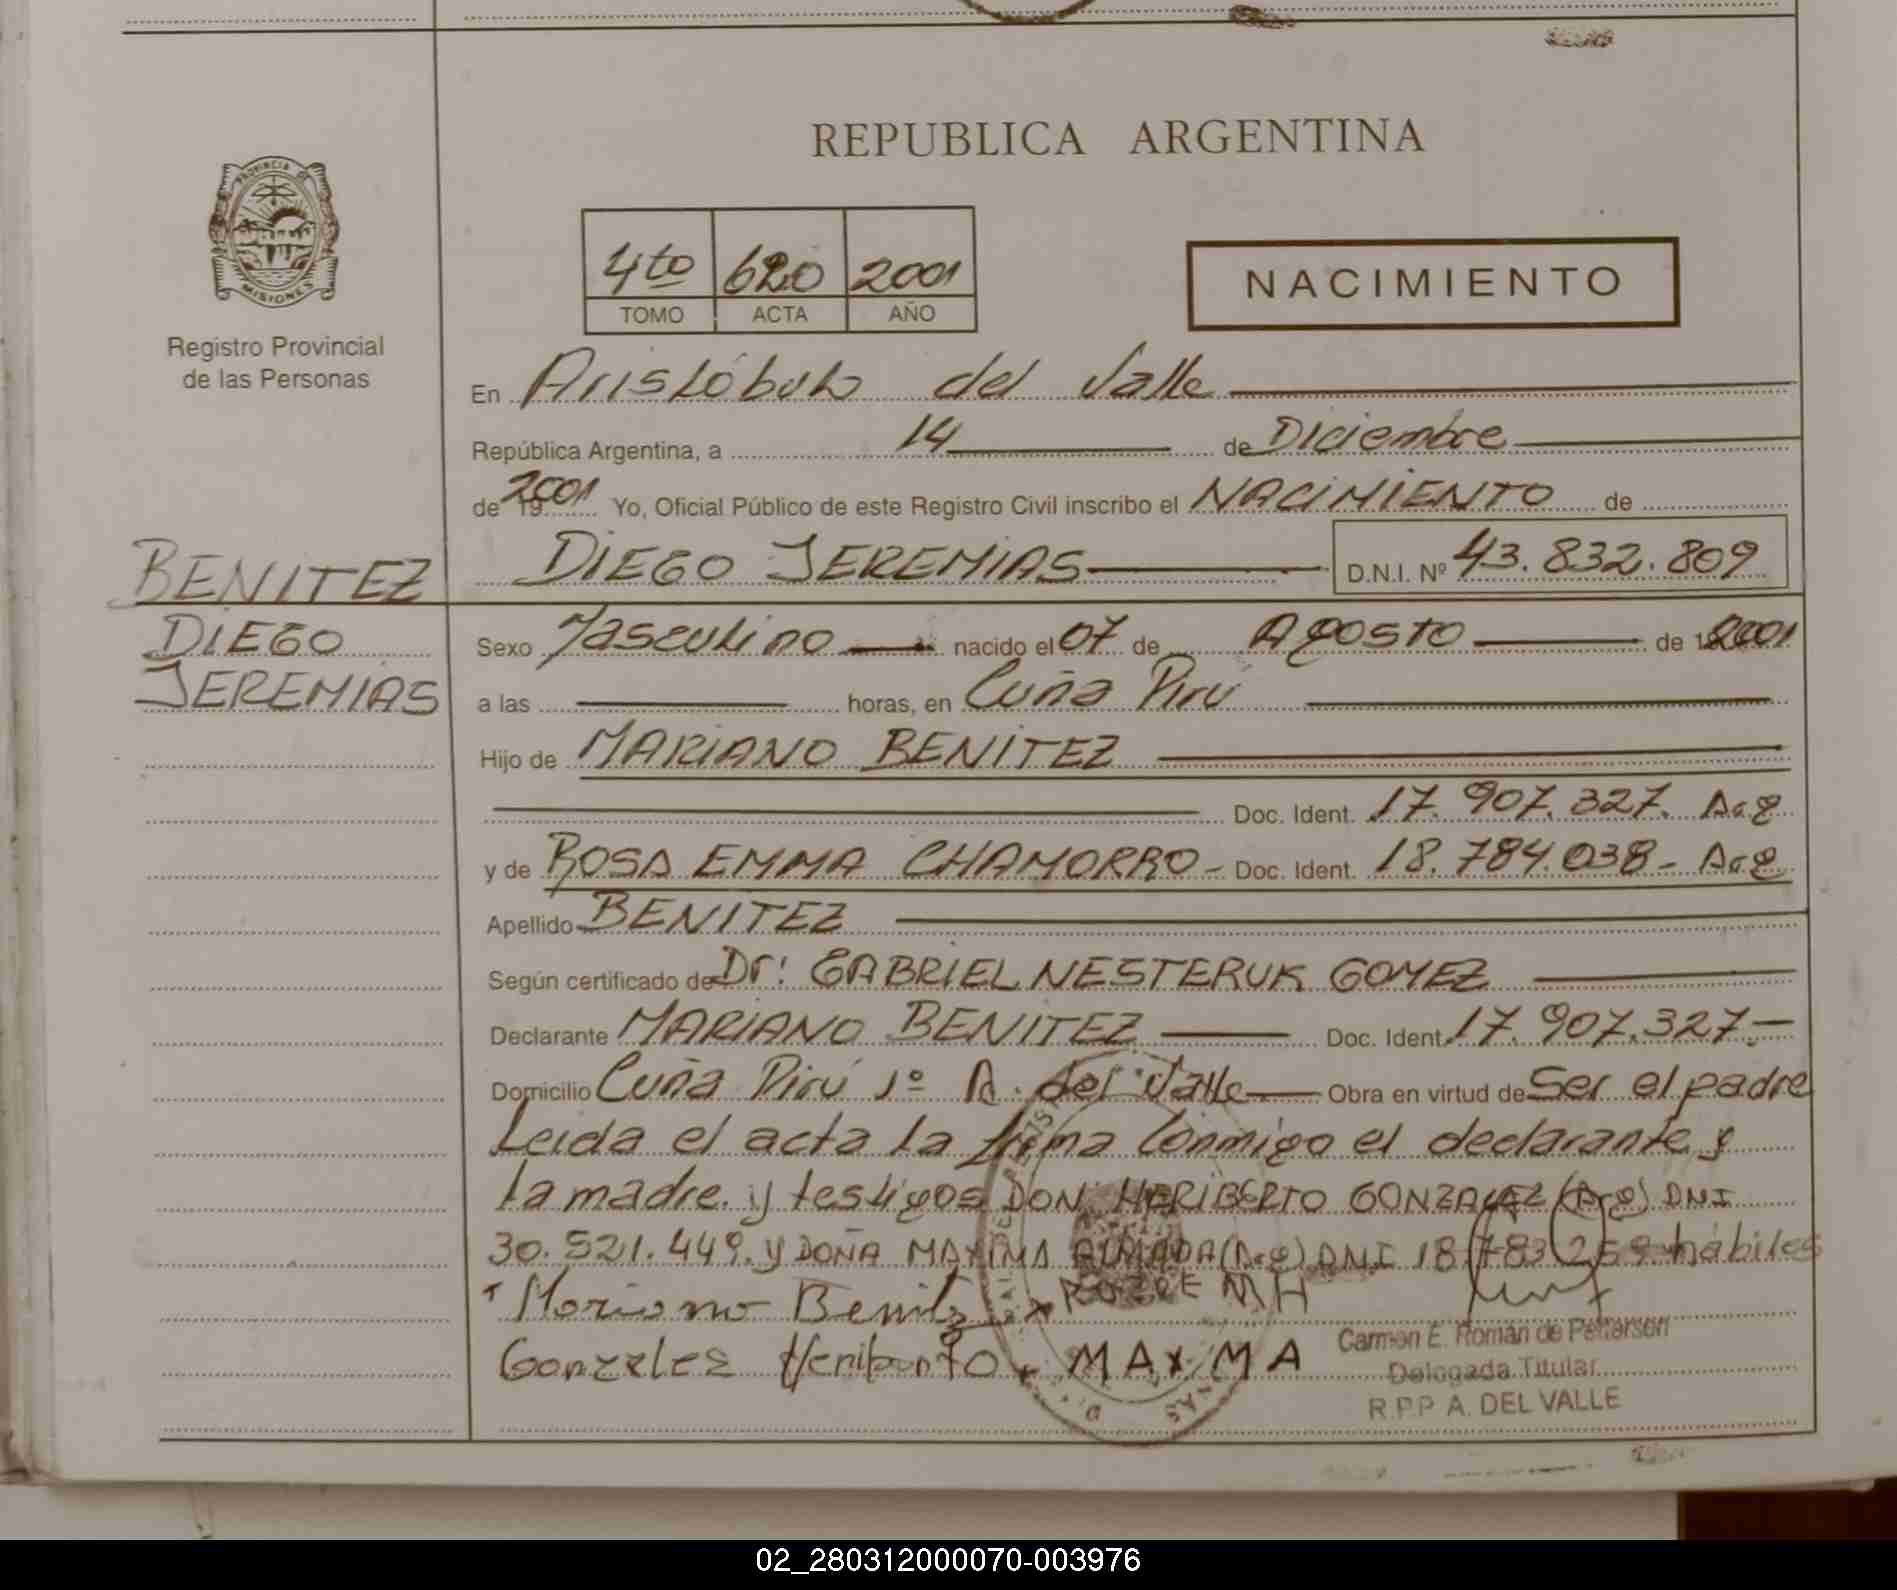 REPUBLICA ARGENTINA
PROVINCIA DE
MISIONES
Registro Provincial
de las Personas
4to 620 2001
TOMO ACTA AÑO
NACIMIENTO
En Aristóbulo del Valle
República Argentina, a 14 de Diciembre
de 2001 Yo, Oficial Público de este Registro Civil inscribo el NACIMIENTO de
DIEGO JEREMIAS D.N.I. Nº 43.832.809
BENITEZ
DIEGO
JEREMIAS
Sexo Masculino nacido el 07 de Agosto de 2001
a las horas, en Cuña Pirú
Hijo de MARIANO BENITEZ
Doc. Ident. 17.907.327. Arg
y de ROSA EMMA CHAMORRO- Doc. Ident. 18.784.038- Arg
Apellido BENITEZ
Según certificado de Dr: GABRIEL NESTERUK GOMEZ
Declarante MARIANO BENITEZ Doc. Ident. 17.907.327.-
Domicilio Cuña Pirú 1º A. del Valle Obra en virtud de Ser el padre
Leida el acta la firma Conmigo el declarante y
la madre. y testigos DON HERIBERTO GONZALEZ (Arg) DNI
30.521.449. y DOÑA MAXIMA (Arg) DNI 18.783.259 hábiles
Mariano Benitez
Gonzalez Heriberto MAXIMA
Carmen E. Román de Petterson
Delegada Titular
R.P.P A. DEL VALLE
02_280312000070-003976